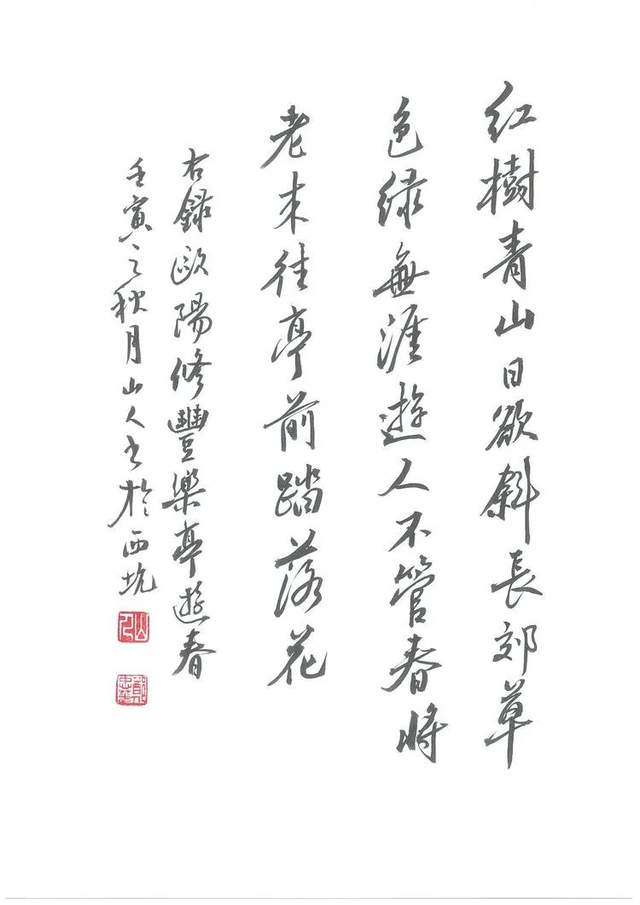 紅樹青山日欲斜長郊草
色綠無涯遊人不管春將
老来往亭前踏落花
右録歐陽修豐樂亭遊春
壬寅之秋月山人书於西坑
山人